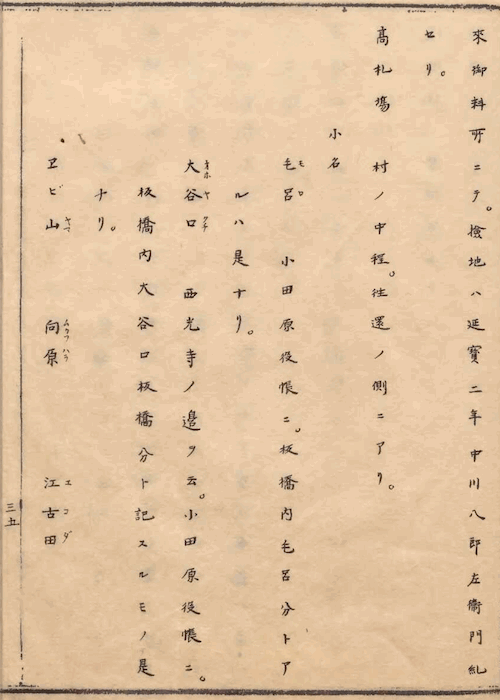 來御料所ニテ。檢地ハ延寶二年中川八郎左衞門糺
セリ。
高札塲　村ノ中程。往還ノ側ニアリ。
小名
毛呂モロ　小田原役帳ニ。板橋内毛呂分トア
ルハ是ナリ。
大谷口オホヤクチ　西光寺ノ邉ヲ云。小田原役帳ニ。
板橋内大谷口板橋分ト記スルモノ是
ナリ。
ヱビ山ヤマ　向原ムカフハラ　江古田エコダ
三五